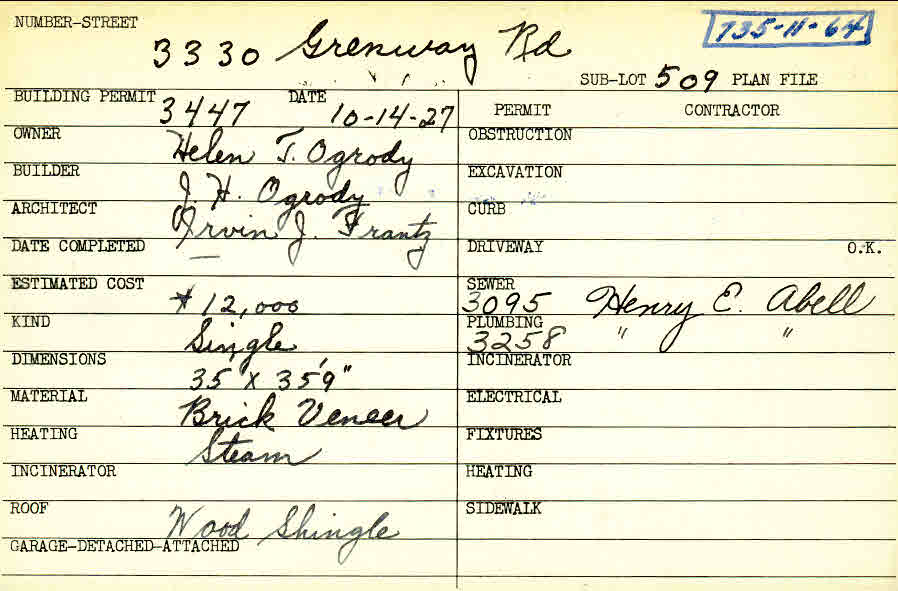 NUMBER-STREET
3330 Grenway Rd
735-11-64
SUB-LOT 509 PLAN FILE
BUILDING PERMIT 3447 DATE 10-14-27
PERMIT CONTRACTOR
OWNER Helen T. Ogrody
OBSTRUCTION
BUILDER J. H. Ogrody
EXCAVATION
ARCHITECT Irvin J. Frantz
CURB
DATE COMPLETED —
DRIVEWAY O.K.
ESTIMATED COST $12,000
SEWER 3095 Henry E. Abell
KIND Single
PLUMBING 3258 " "
DIMENSIONS 35' X 35'9"
INCINERATOR
MATERIAL Brick Veneer
ELECTRICAL
HEATING Steam
FIXTURES
INCINERATOR
HEATING
ROOF Wood Shingle
SIDEWALK
GARAGE-DETACHED-ATTACHED